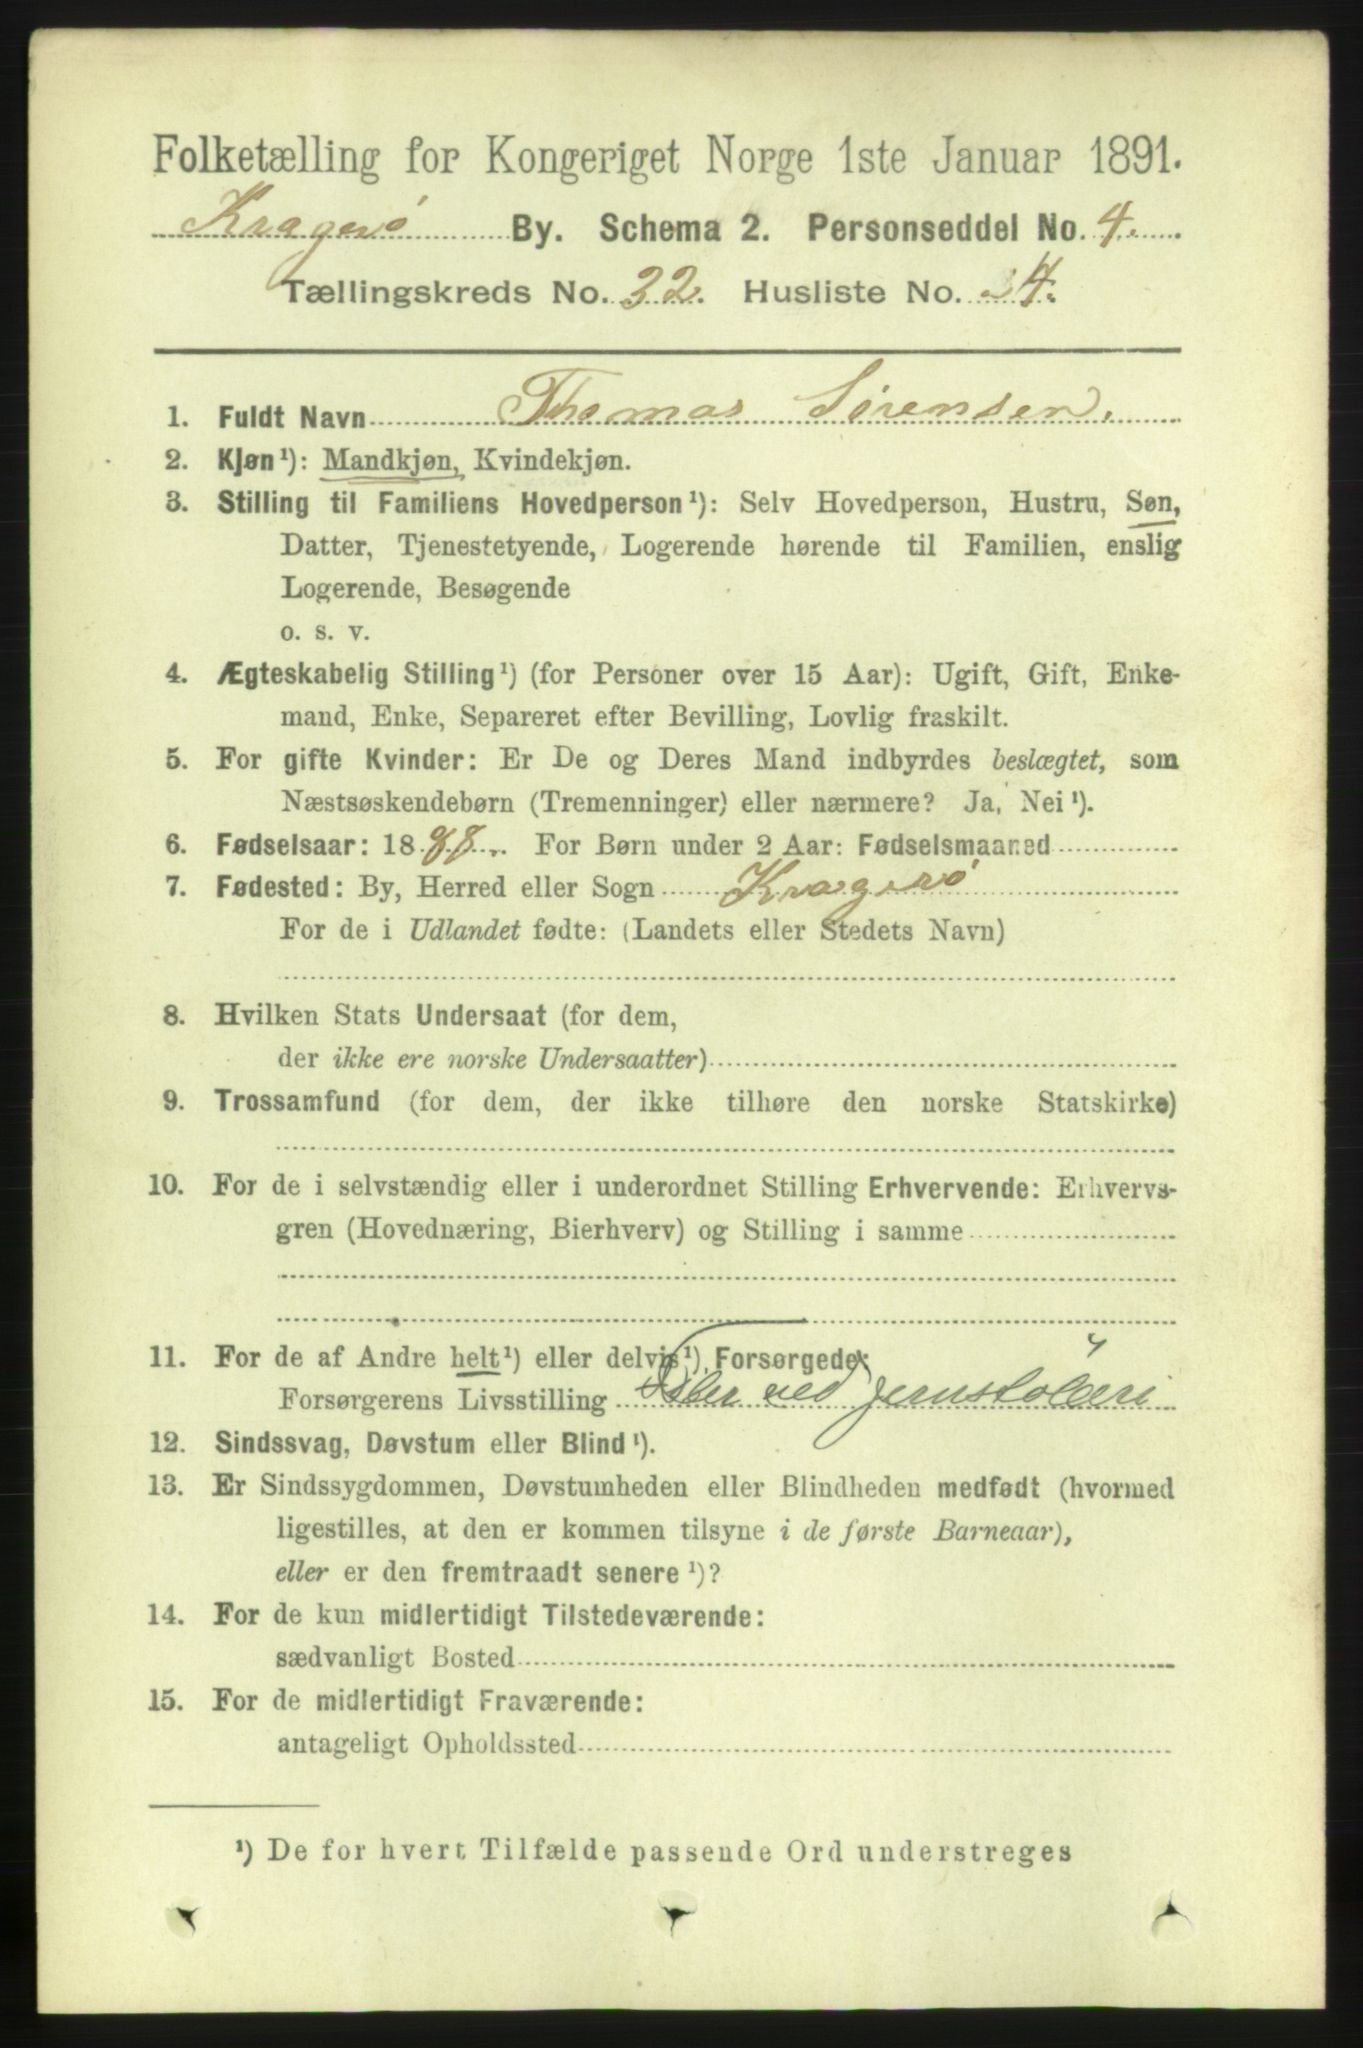 Folketælling for Kongeriget Norge 1ste Januar 1891.
Kragerø By. Schema 2. Personseddel No. 4.
Tællingskreds No. 32. Husliste No. 4.
1. Fuldt Navn Thomas Sørensen.
2. Kjøn¹): Mandkjøn, Kvindekjøn.
3. Stilling til Familiens Hovedperson¹): Selv Hovedperson, Hustru, Søn,
Datter, Tjenestetyende, Logerende hørende til Familien, enslig
Logerende, Besøgende
o. s. v.
4. Ægteskabelig Stilling¹) (for Personer over 15 Aar): Ugift, Gift, Enke-
mand, Enke, Separeret efter Bevilling, Lovlig fraskilt.
5. For gifte Kvinder: Er De og Deres Mand indbyrdes beslægtet, som
Næstsøskendebørn (Tremenninger) eller nærmere? Ja, Nei¹).
6. Fødselsaar: 1888. For Børn under 2 Aar: Fødselsmaaned
7. Fødested: By, Herred eller Sogn Kragerø
For de i Udlandet fødte: (Landets eller Stedets Navn)
8. Hvilken Stats Undersaat (for dem,
der ikke ere norske Undersaatter)
9. Trossamfund (for dem, der ikke tilhøre den norske Statskirke)
10. For de i selvstændig eller i underordnet Stilling Erhvervende: Erhvervs-
gren (Hovednæring, Bierhverv) og Stilling i samme
11. For de af Andre helt¹) eller delvis¹) Forsørgede:
Forsørgerens Livsstilling ved Jernstøberi
12. Sindssvag, Døvstum eller Blind¹).
13. Er Sindssygdommen, Døvstumheden eller Blindheden medfødt (hvormed
ligestilles, at den er kommen tilsyne i de første Barneaar),
eller er den fremtraadt senere¹)?
14. For de kun midlertidigt Tilstedeværende:
sædvanligt Bosted
15. For de midlertidigt Fraværende:
antageligt Opholdssted
¹) De for hvert Tilfælde passende Ord understreges